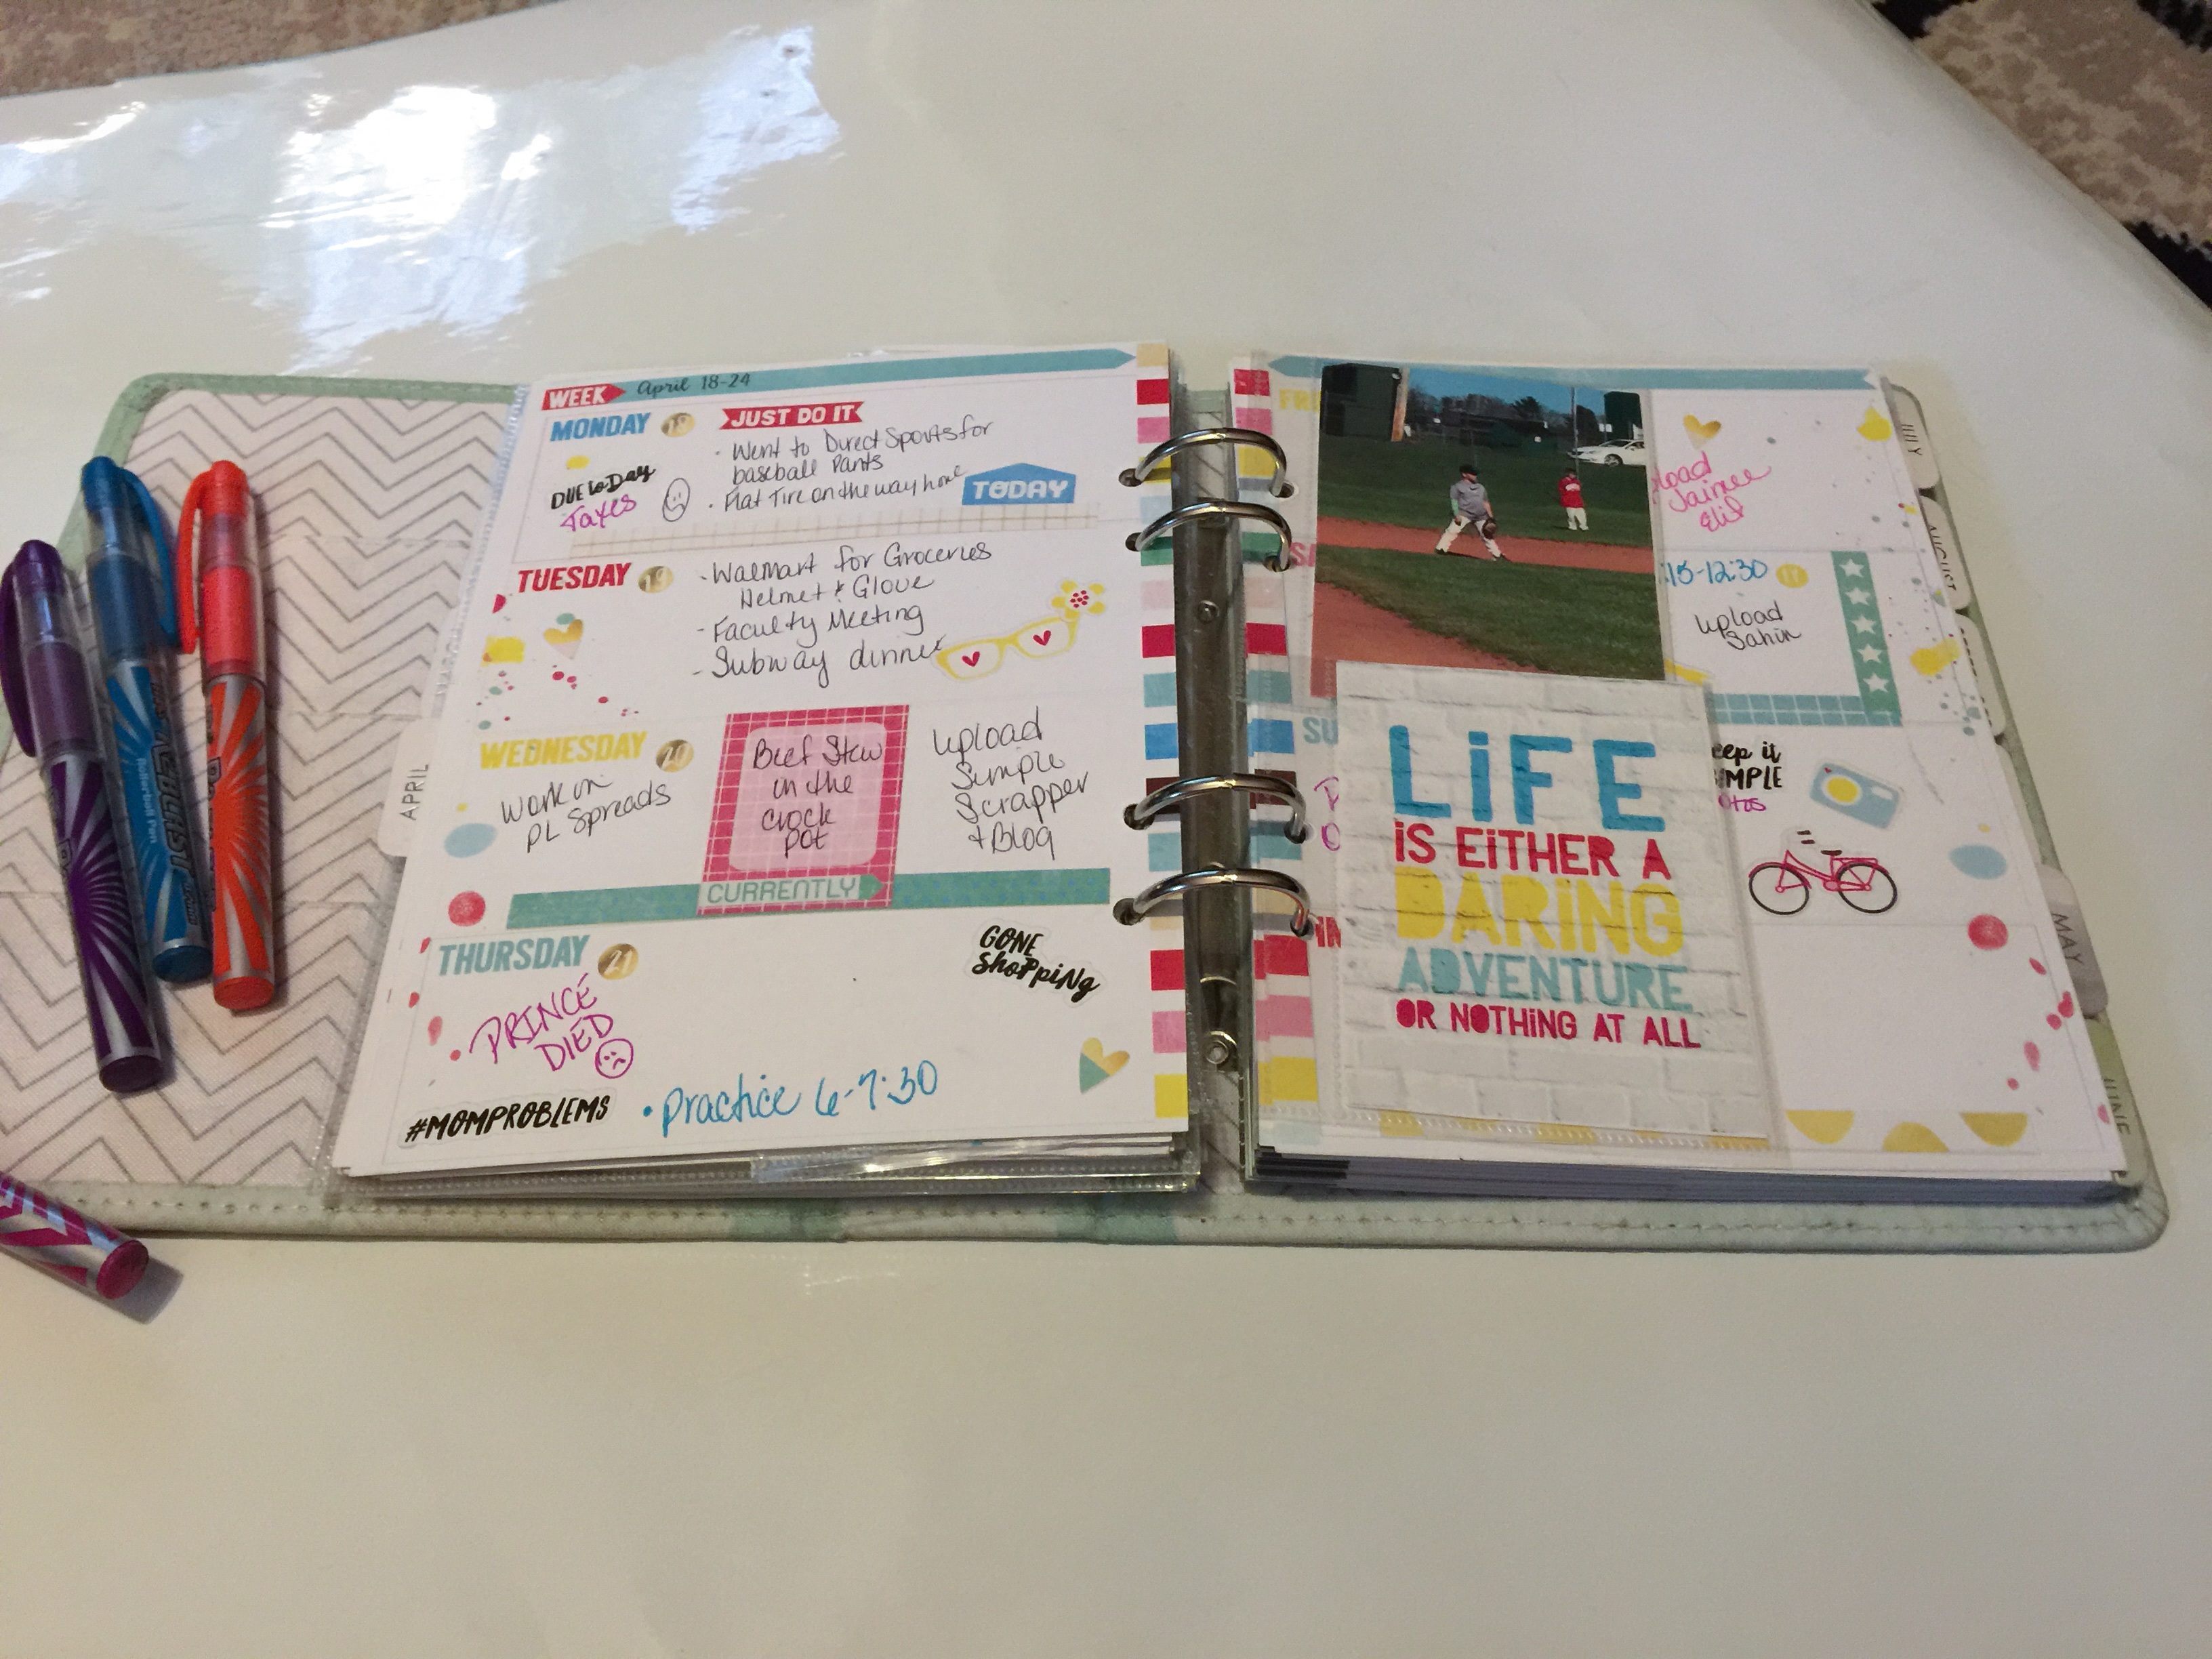 WEEK April 18-24
MONDAY 18
JUST DO IT
· Went to Direct Sports for
baseball Pants
· Flat Tire on the way home
TODAY
DUE toDay
Taxes
TUESDAY 19
· Walmart for Groceries
Helmet & Glove
- Faculty Meeting
- Subway dinner
WEDNESDAY 20
Work on
PL Spreads
Beef Stew
in the
crock
pot
CURRENTLY
Upload
Simple
Scrapper
+ Blog
THURSDAY 21
PRINCE
DIED
GONE
ShoPpiNg
#MOMPROBLEMS
• Practice 6-7:30
APRIL
:15-12:30
upload
LiFE
iS EiTHER A
DARiNG
ADVENTURE
OR NOTHiNG AT ALL
eep it
MPLE
JULY
AUGUST
MAY
JUNE
Rollerball Pen